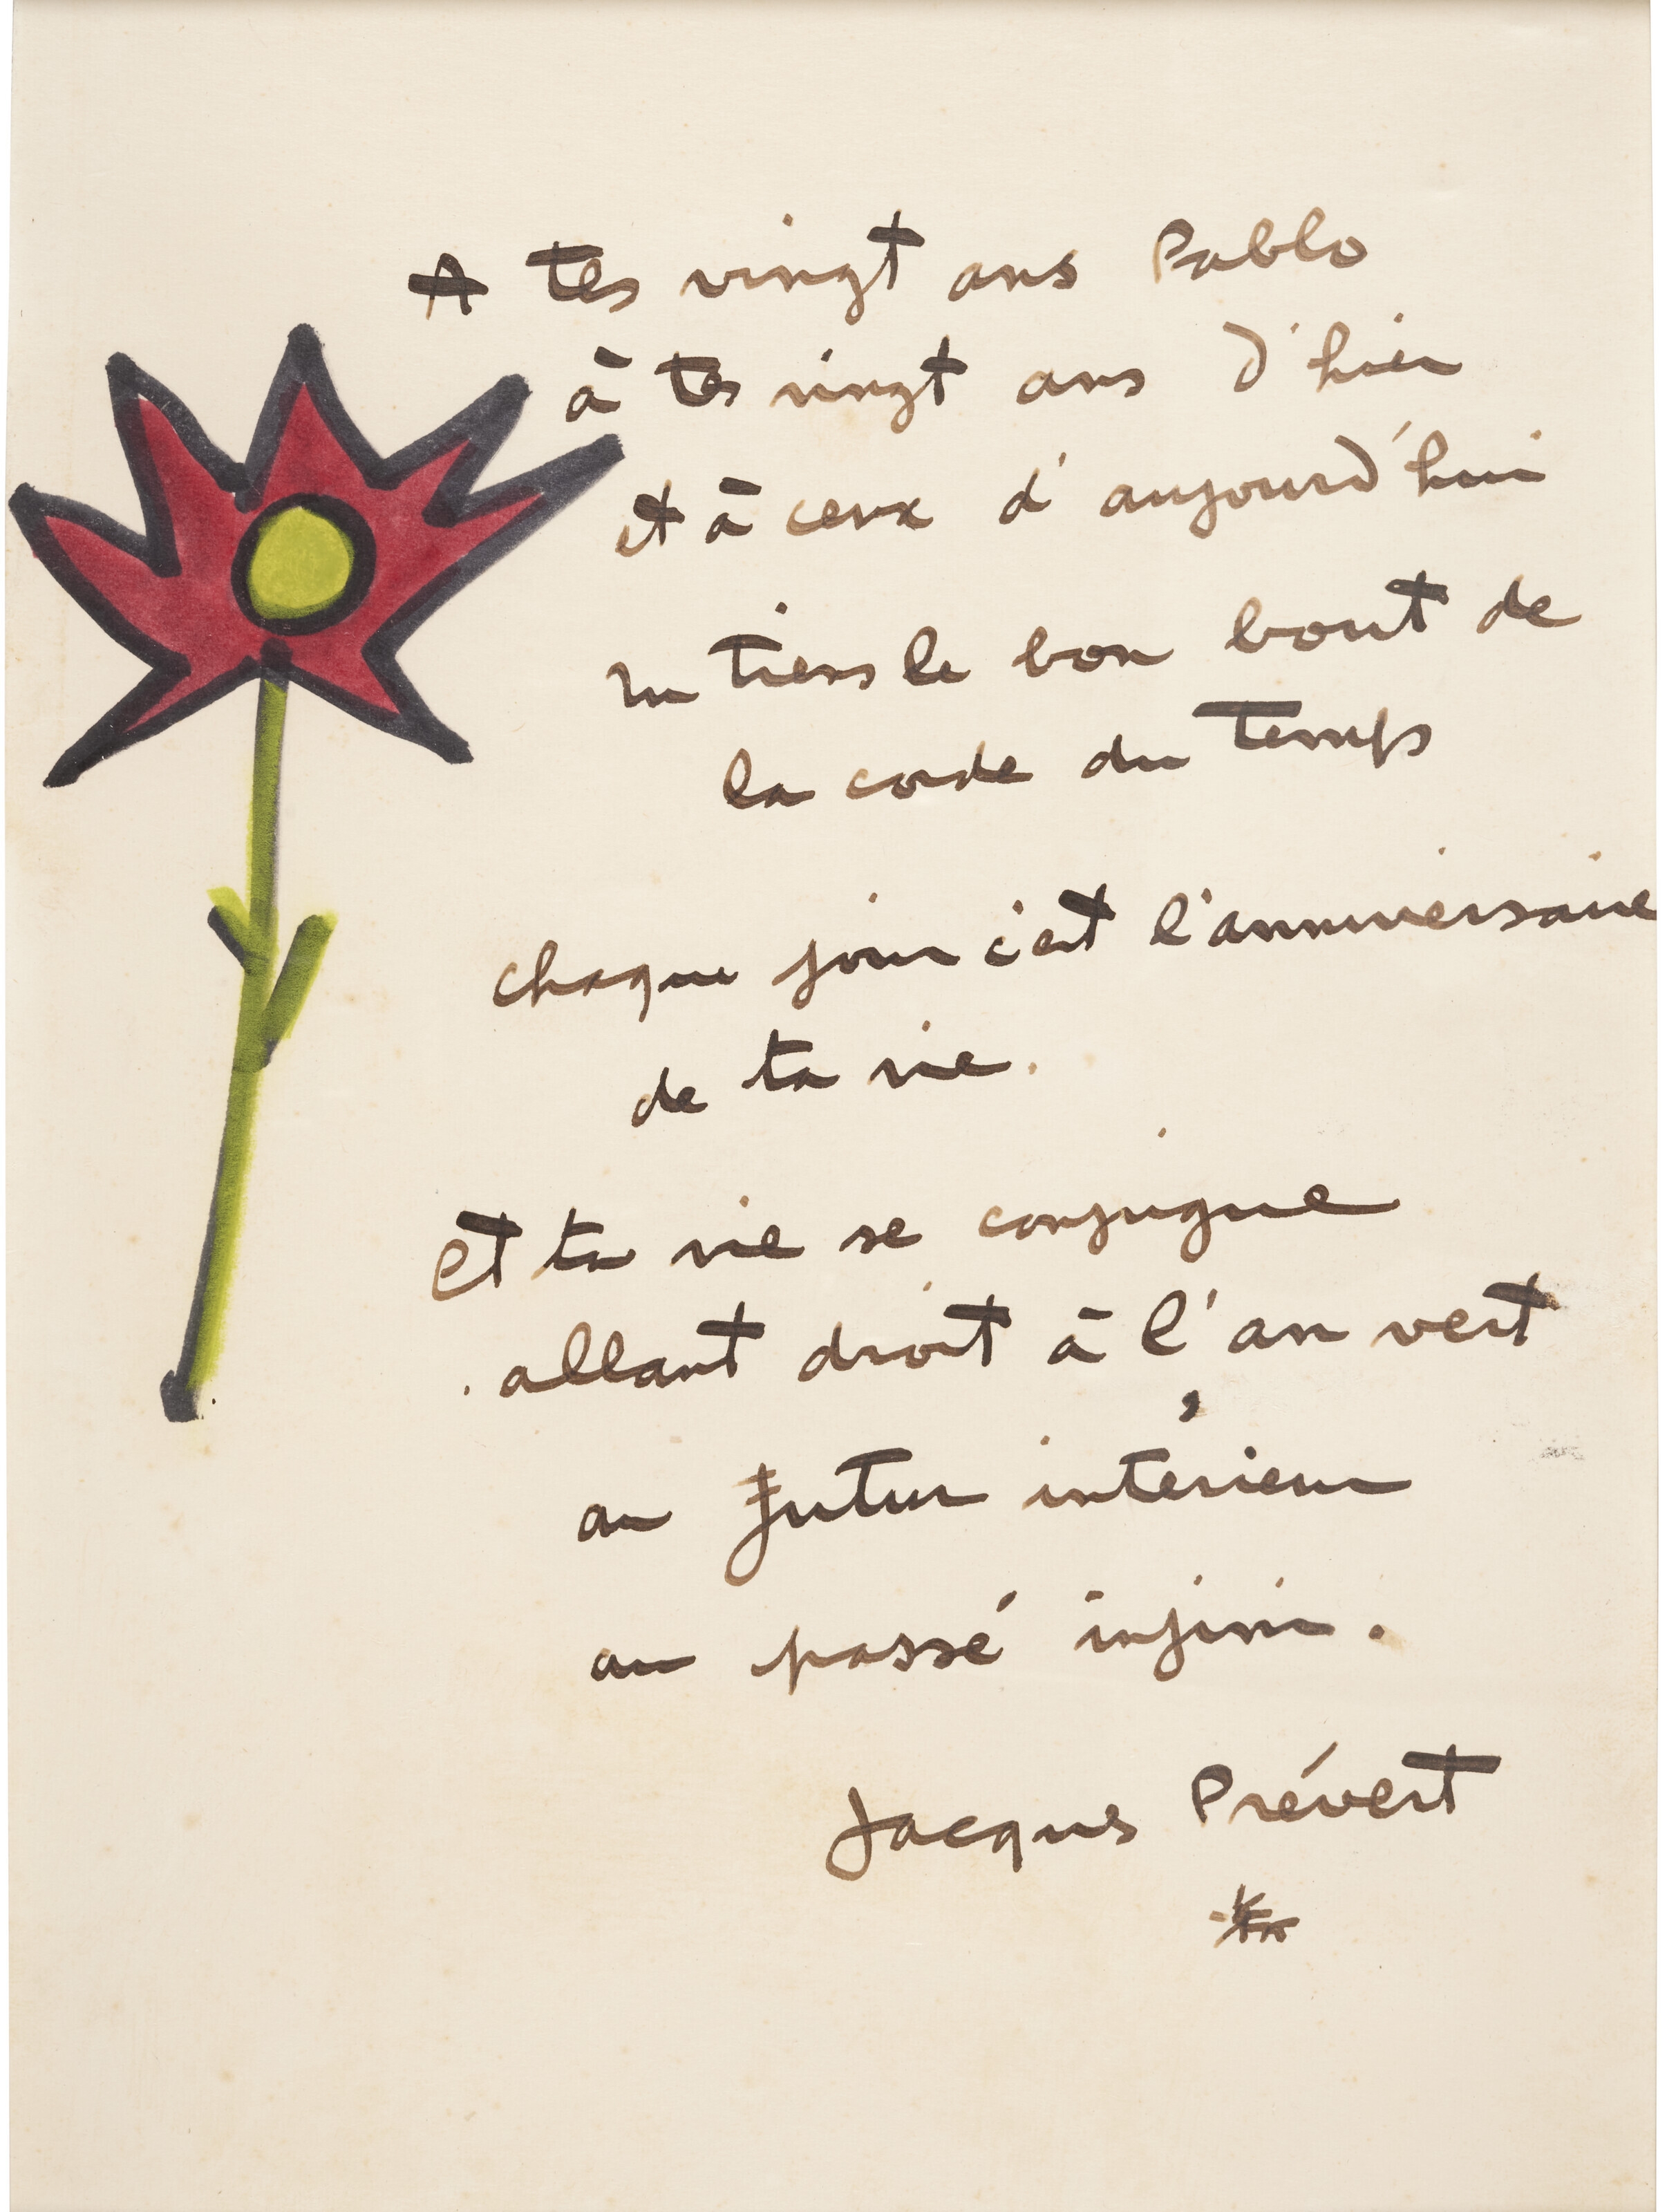 A tes vingt ans Pablo
à tes vingt ans d'hier
et à ceux d'aujourd'hui
tu tiens le bon bout de
la corde du temps
chaque jour c'est l'anniversaire
de ta vie.
Et ta vie se conjugue
allant droit à l'an vert
au futur intérieur
au passé infini.
Jacques Prévert